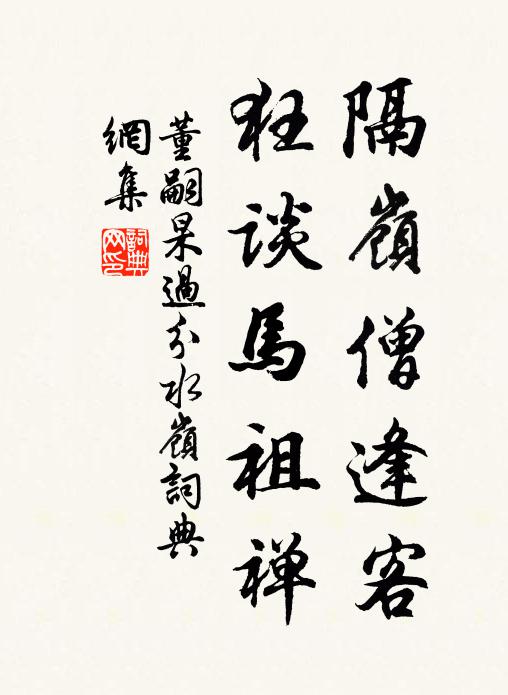 隔嶺僧逢客
狂談馬祖禅
董嗣杲過分水嶺詞典
網集
詞典
网印